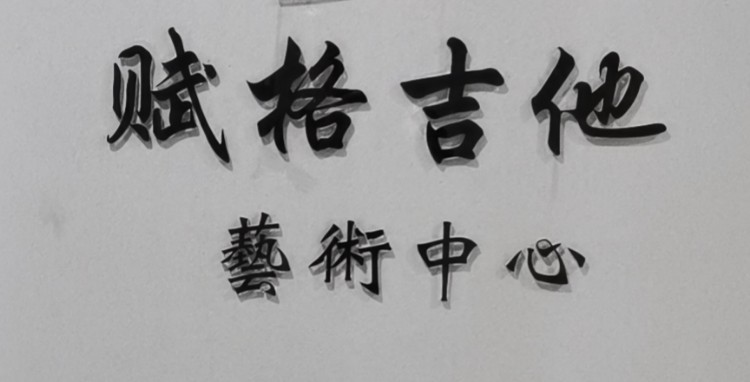 赋格吉他
藝術中心